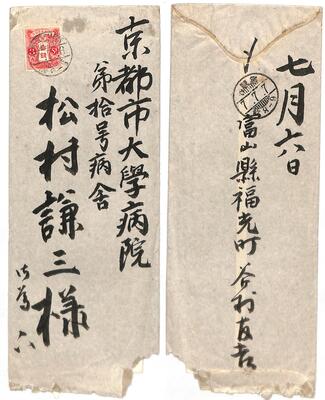 京都市大學病院
第拾号病舎
松村謙三様
七月六日
富山縣福光町
谷村友吉